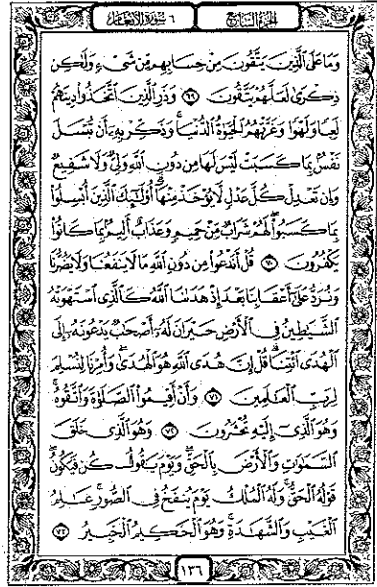 ٦ سورة الأنعام
الجزء السابع
وَمَا عَلَى ٱلَّذِينَ يَتَّقُونَ مِنْ حِسَابِهِم مِّن شَىْءٍ وَلَٰكِن
ذِكْرَىٰ لَعَلَّهُمْ يَتَّقُونَ ٦٩ وَذَرِ ٱلَّذِينَ ٱتَّخَذُوا۟ دِينَهُمْ
لَعِبًا وَلَهْوًا وَغَرَّتْهُمُ ٱلْحَيَوٰةُ ٱلدُّنْيَا ۚ وَذَكِّرْ بِهِۦٓ أَن تُبْسَلَ
نَفْسٌۢ بِمَا كَسَبَتْ لَيْسَ لَهَا مِن دُونِ ٱللَّهِ وَلِىٌّ وَلَا شَفِيعٌ
وَإِن تَعْدِلْ كُلَّ عَدْلٍ لَّا يُؤْخَذْ مِنْهَآ ۗ أُو۟لَٰٓئِكَ ٱلَّذِينَ أُبْسِلُوا۟
بِمَا كَسَبُوا۟ ۖ لَهُمْ شَرَابٌ مِّنْ حَمِيمٍ وَعَذَابٌ أَلِيمٌۢ بِمَا كَانُوا۟
يَكْفُرُونَ ٧٠ قُلْ أَنَدْعُوا۟ مِن دُونِ ٱللَّهِ مَا لَا يَنفَعُنَا وَلَا يَضُرُّنَا
وَنُرَدُّ عَلَىٰٓ أَعْقَابِنَا بَعْدَ إِذْ هَدَىٰنَا ٱللَّهُ كَٱلَّذِى ٱسْتَهْوَتْهُ
ٱلشَّيَٰطِينُ فِى ٱلْأَرْضِ حَيْرَانَ لَهُۥٓ أَصْحَٰبٌ يَدْعُونَهُۥٓ إِلَى
ٱلْهُدَى ٱئْتِنَا ۗ قُلْ إِنَّ هُدَى ٱللَّهِ هُوَ ٱلْهُدَىٰ ۖ وَأُمِرْنَا لِنُسْلِمَ
لِرَبِّ ٱلْعَٰلَمِينَ ٧١ وَأَنْ أَقِيمُوا۟ ٱلصَّلَوٰةَ وَٱتَّقُوهُ ۚ
وَهُوَ ٱلَّذِىٓ إِلَيْهِ تُحْشَرُونَ ٧٢ وَهُوَ ٱلَّذِى خَلَقَ
ٱلسَّمَٰوَٰتِ وَٱلْأَرْضَ بِٱلْحَقِّ ۖ وَيَوْمَ يَقُولُ كُن فَيَكُونُ ۚ
قَوْلُهُ ٱلْحَقُّ ۚ وَلَهُ ٱلْمُلْكُ يَوْمَ يُنفَخُ فِى ٱلصُّورِ ۚ عَٰلِمُ
ٱلْغَيْبِ وَٱلشَّهَٰدَةِ ۚ وَهُوَ ٱلْحَكِيمُ ٱلْخَبِيرُ ٧٣
١٣٦